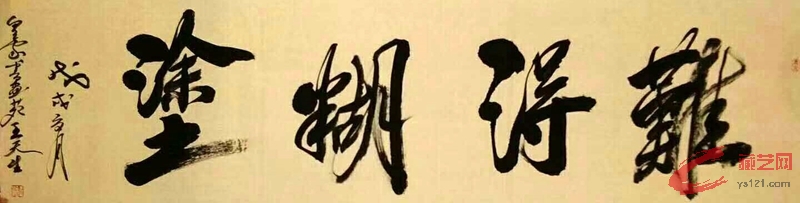 難得糊塗
戊戌
月
王天生
藏艺网
ys121.com